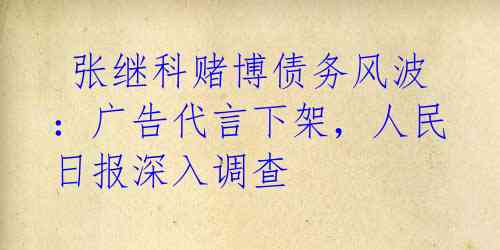 张继科赌博债务风波
：广告代言下架，人民
日报深入调查